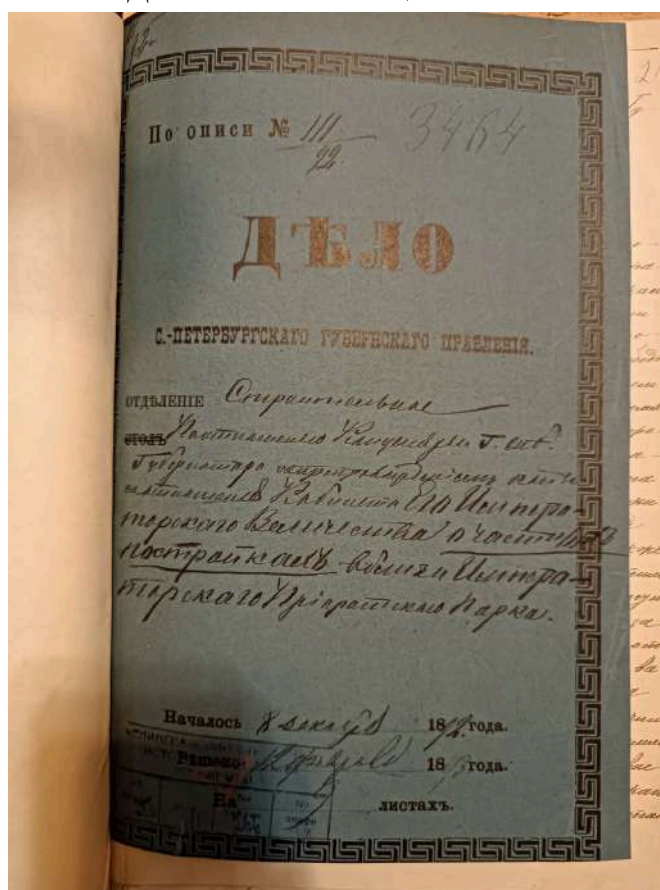 По описи № 111/22. 3464
ДѢЛО
С.-ПЕТЕРБУРГСКАГО ГУБЕРНСКАГО ПРАВЛЕНІЯ.
ОТДѢЛЕНІЕ Строительное
СТОЛЪ По отношенію Канцеляріи Г.
Губернатора
Кабинета Его Импера-
торскаго Величества о частныхъ
постройкахъ вблизи Импера-
торскаго Пріоратскаго Парка.
Началось 8 декабря 1892 года.
Рѣшено 189 года.
На листахъ.